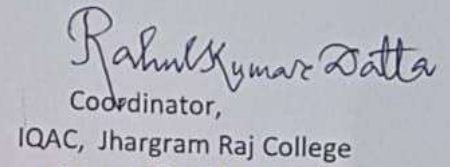 Rahul Kumar Datta
Coordinator,
IQAC, Jhargram Raj College